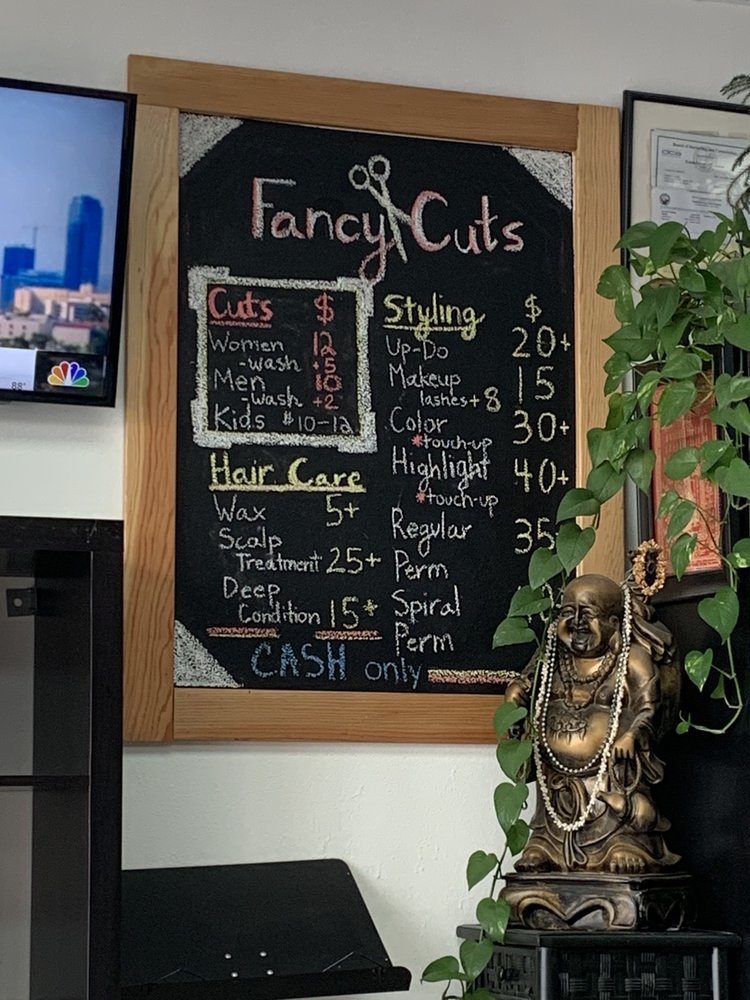 Fancy Cuts
Cuts $
Women 12
-wash +5
Men 10
-wash +2
Kids $10-12
Hair Care
Wax 5+
Scalp
Treatment 25+
Deep
Condition 15+
Styling $
Up-Do 20+
Makeup 15
lashes +8
Color 30+
*touch-up
Highlight 40+
*touch-up
Regular 35
Perm
Spiral
Perm
CASH only
88°